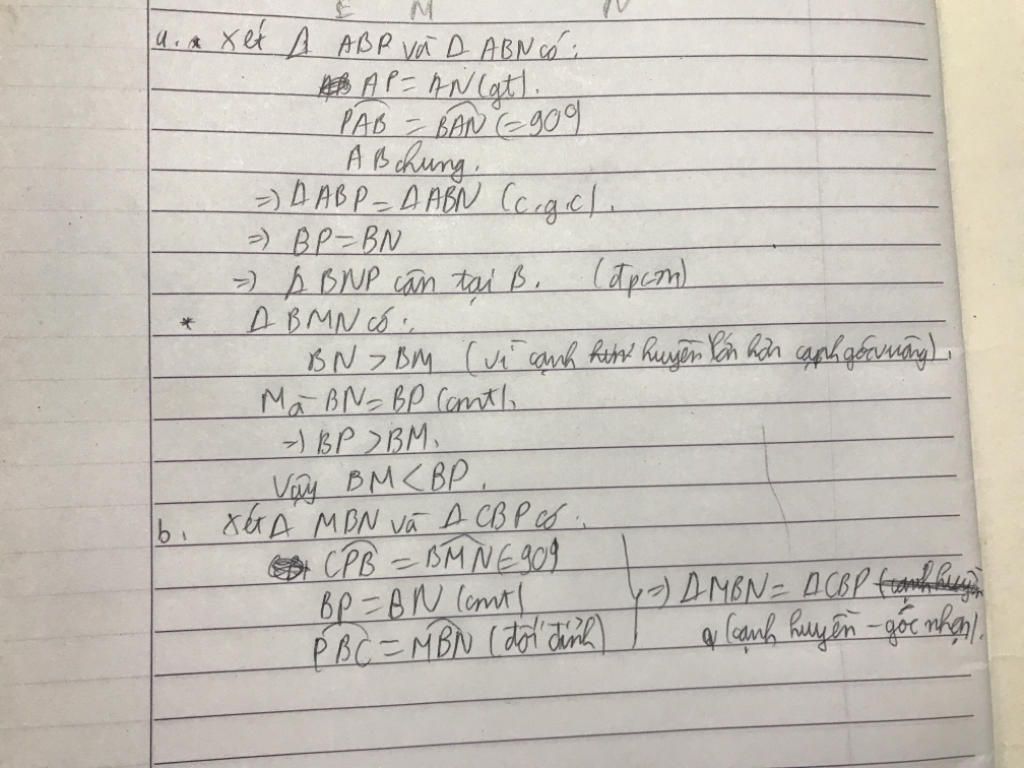 E M N
a. * Xét Δ ABP và Δ ABN có:
AP = AN (gt).
PAB = BAN (= 90°)
AB chung.
=> ΔABP = ΔABN (c.g.c).
=> BP = BN
=> Δ BNP cân tại B. (đpcm)
* Δ BMN có:
BN > BM (vì cạnh huyền lớn hơn cạnh góc vuông).
Mà BN = BP (cmt).
=> BP > BM.
Vậy BM < BP.
b. Xét Δ MBN và Δ CBP có:
CPB = BMN (= 90°)
BP = BN (cmt)
=> Δ MBN = Δ CBP
PBC = MBN (đối đỉnh)
(cạnh huyền - góc nhọn).